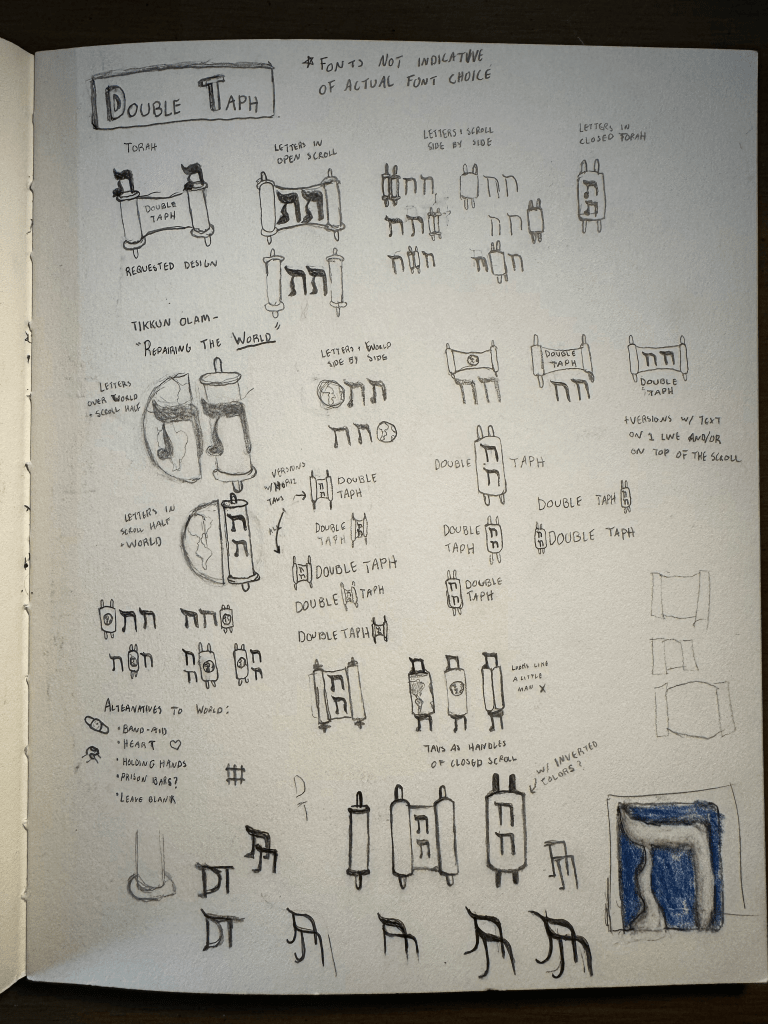 DOUBLE TAPH
* FONTS NOT INDICATIVE
OF ACTUAL FONT CHOICE
TORAH
ת ת
DOUBLE
TAPH
REQUESTED DESIGN
LETTERS IN
OPEN SCROLL
תת
תת
LETTERS + SCROLL
SIDE BY SIDE
תת
תת
תת
תת
ת ת
ת ת
LETTERS IN
CLOSED TORAH
ת
ת
TIKKUN OLAM-
"REPAIRING THE WORLD"
LETTERS
OVER WORLD
+ SCROLL HALF
ת ת
LETTERS IN
SCROLL HALF
+ WORLD
ת
ת
LETTERS + WORLD
SIDE BY SIDE
תת
תת
תת
DOUBLE
TAPH
תת
תת
DOUBLE
TAPH
+VERSIONS W/ TEXT
ON 1 LINE AND/OR
ON TOP OF THE SCROLL
VERSIONS
W/ HORIZ
TAVS
ALL
DOUBLE
TAPH
DOUBLE
TAPH
DOUBLE TAPH
DOUBLE TAPH
DOUBLE TAPH
DOUBLE
ת
ת
TAPH
DOUBLE
TAPH
DOUBLE TAPH
DOUBLE TAPH
DOUBLE
TAPH
תת
תת
ת ת
ת ת
ת ת
ת
ת
ת
ת
LOOKS LIKE
A LITTLE
MAN X
TAVS AS HANDLES
OF CLOSED SCROLL
ALTERNATIVES TO WORLD:
• BAND-AID
• HEART
• HOLDING HANDS
• PRISON BARS?
• LEAVE BLANK
D
T
W/ INVERTED
COLORS?
ת
ת
ת
ת
תת
תת
DT
DT
ת